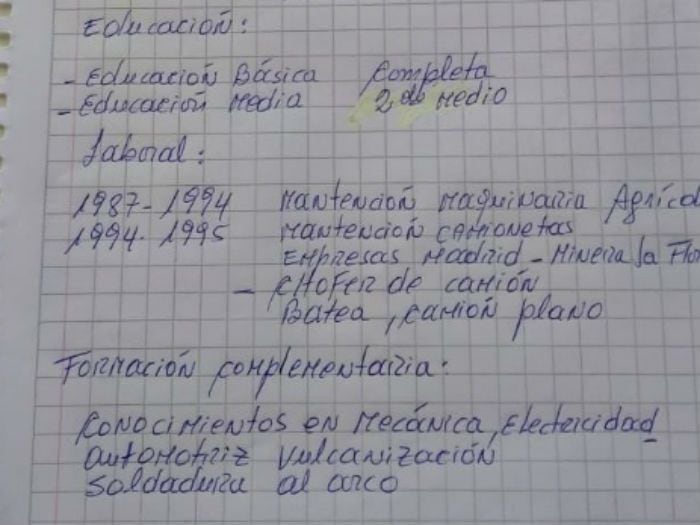 Educación:
- Educación Básica Completa
- Educación Media 2do Medio
Laboral:
1987-1994 Mantención Maquinaria Agrícol
1994-1995 Mantención camionetas
Empresas Madrid - Minera la Flor
- Chofer de camión
Batea, camión plano
Formación complementaria:
Conocimientos en Mecánica, Electricidad
automotriz Vulcanización
Soldadura al arco